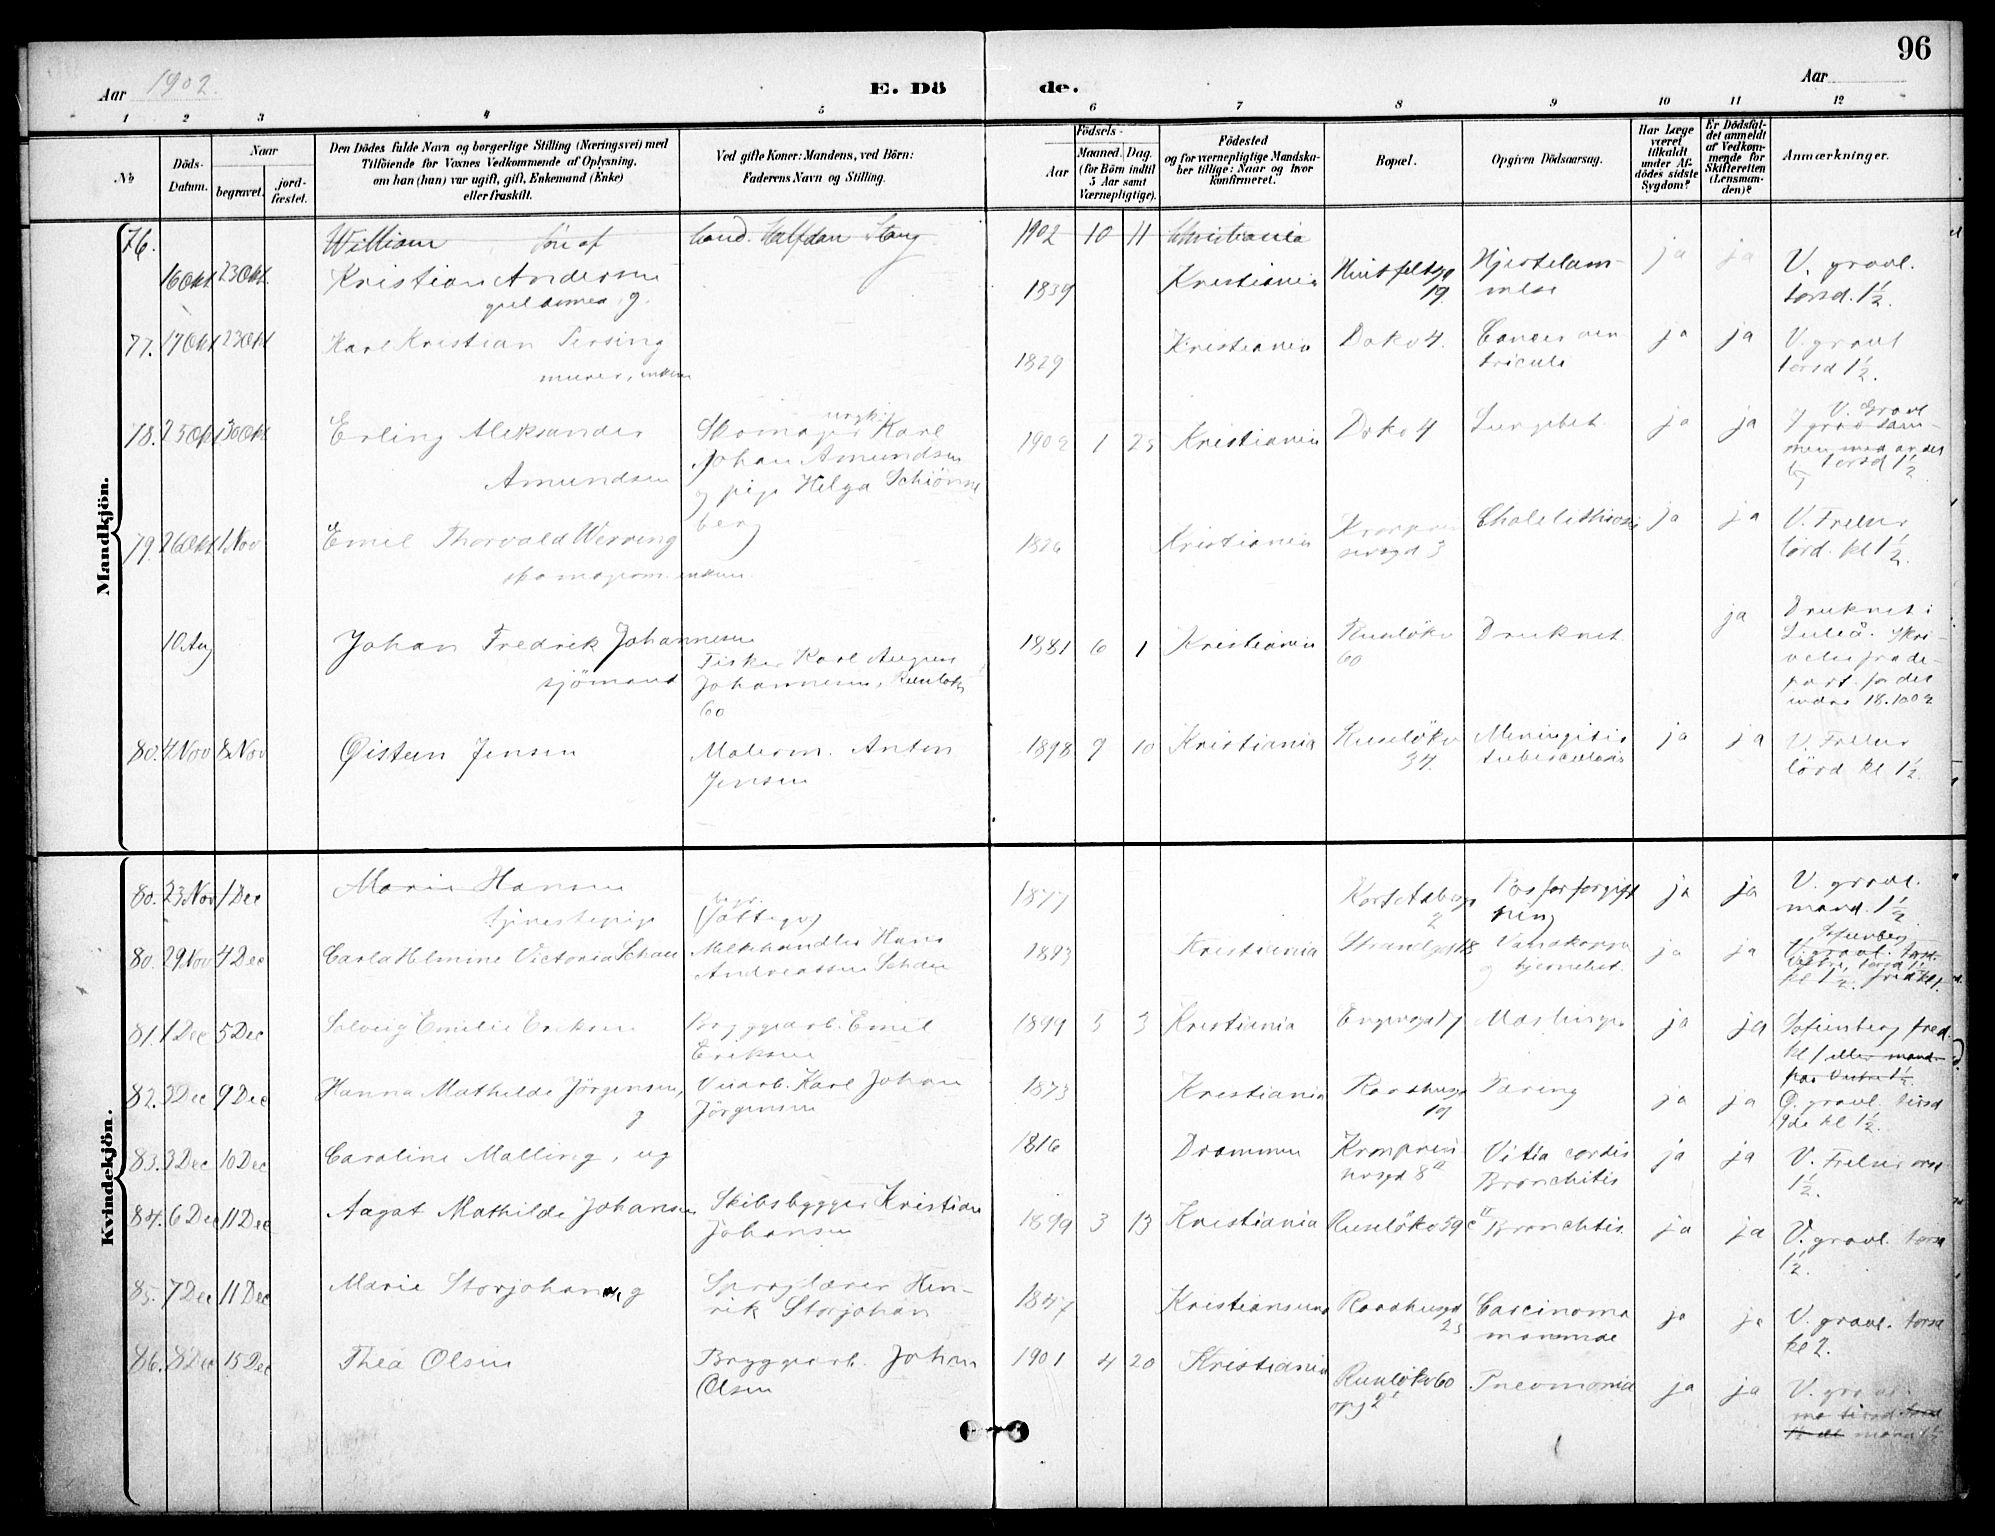 96
Aar 1902.
E. Dö
de.
Aar
1 2 3 4 5 6 7 8 9 10 11 12
No
Döds-
Datum.
Naar
begravet.
jord-
fæstet.
Den Dödes fulde Navn og borgerlige Stilling (Næringsvei) med
Tilföiende for Voxnes Vedkommende af Oplysning,
om han (hun) var ugift, gift, Enkemand (Enke)
eller fraskilt.
Ved gifte Koner: Mandens, ved Börn:
Faderens Navn og Stilling.
Födsels-
Aar
Maaned.
Dag.
(for Börn indtil
5 Aar samt
Værnepligtige).
Födested
og for værnepligtige Mandska-
ber tillige: Naar og hvor
konfirmeret.
Bopæl.
Opgiven Dödsaarsag.
Har Læge
været
tilkaldt
under Af-
dödes sidste
Sygdom?
Er Dödsfal-
det anmeldt
af Vedkom-
mende for
Skifteretten
(Lensman-
den)?
Anmærkninger.
Mandkjön.
76. William Sön af Cand. Halfdan Stang 1902 10 11 Christiania
16 Okt 23 Okt. Kristian Andersen
g. 1839 Kristiania 19 Hjertelam-
melse ja ja V. gravl.
torsd. 1½.
77. 17 Okt 23 Okt Karl Kristian
murer, enkem 1829 Kristiania Do ko 4. Cancer ven
triculi ja ja V. gravl
torsd 1½.
78. 25 Okt 30 Okt Erling Aleksander
Amundsen Skomager Karl
Johan Amundsen
og pige Helga Schönne
berg 1902 1 25 Kristiania Do ko 4 Lungebet. ja ja V. Gravl
torsd 1½
79. 26 Okt 1 Nov Emil Thorvald Werring
skomagerm. enkem 1826 Kristiania Kronprin
sensgd 3 Cholelithiasis ja ja V. Frelser
lörd. kl 1½.
10 Aug Johan Fredrik Johannesen
sjömand Fisker Karl August
Johannesen, Ruselökv
60 1881 6 1 Kristiania Ruselökv
60 Druknet ja Druknet i
Luleå. Skri-
velse fra de-
part. for det
indre 18.1002
80. 4 Nov 8 Nov Öistein Jensen Malerm. Anton
Jensen 1898 9 10 Kristiania Ruselökv
34. Meningitis
tuberculosis ja ja V. Frelser
lörd kl 1½.
Kvindekjön.
80. 23 Nov 1 Dec Marie Hansen
tjenestepige 1877 2 Fosforforgift
ning ja ja V. gravl.
mand. 1½
80. 29 Nov 4 Dec Carla Helmine Victoria Schau Melkehandler Hans
Andreassen Schau 1893 Kristiania 18 Vandkopper
og hjernebet. ja ja Sofienberg
V. gravl. torsd.
kl 1½. fred kl 1.
81. 1 Dec 5 Dec Solveig Emilie Eriksen Bryggearb. Emil
Eriksen 1899 5 3 Kristiania Engensgd 7 Mæslinger ja ja Sofienberg fred.
kl 1 eller mand
paa Vestre 1½.
82. 3 Dec 9 Dec Hanna Mathilde Jörgensen,
g Karl Johan
Jörgensen 1873 Kristiania Raadhusgd
19 Tæring ja ja Ö. gravl. tirsd
9de kl 1½.
83. 3 Dec 10 Dec Caroline Malling, ug 1816 Drammen Kronprin
sensgd 8 II Vitia cordis
Bronchitis ja ja V. Frelser onsd
1½.
84. 6 Dec 11 Dec Aagot Mathilde Johansen Skibsbygger Kristian
Johansen 1899 3 13 Kristiania Ruselökv 59 c II Bronchtis. ja ja V. gravl. torsd
1½.
85. 7 Dec 11 Dec Marie Storjohann, g Sproglærer Hen-
rik Storjohan 1847 Kristiansund Raadhusgd
23 Carcinoma
mammae ja ja V. gravl. torsd
kl 2.
86. 8 Dec 15 Dec Thea Olsen Bryggearb. Johan
Olsen 1901 4 20 Kristiania Ruselökv 60
opg 2 Pneumonia ja ja V. gravl.
tirsd
mand 1½